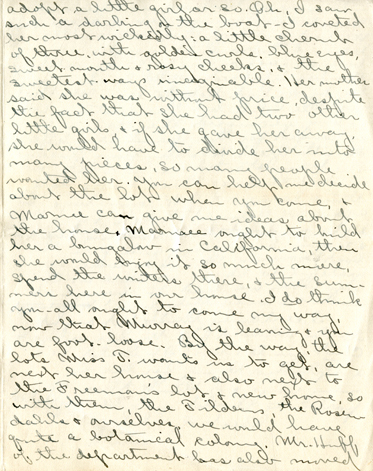 adopt a little girl or so. Oh, I saw
such a darling on the boat - I coveted
her most wickedly; a little cherub
of three, with golden curls, blue eyes,
sweet mouth & rosy cheeks, & the
sweetest ways imaginable. Her mother
said she was without price, despite
the fact that she had two other
little girls, & if she gave her away,
she would have to divide her into
many pieces, so many people
wanted her. You can help me decide
about the lot when you come, &
Marmee can give me ideas about
the house. Marmee ought to build
her a bungalow in California, then
she would enjoy it so much more,
spend the winters there, & the sum-
mers here in our house. I do think
you all ought to come my way,
now that Murray is leaving & you
are foot loose. By the way, the
lots Miss T. wants us to get, are
next her house & also next to
the Freeman's lot & new house, so
with them, the Tildens, the Rosen-
dahls & ourselves, we would have
quite a botanical colony. Mr. Huff
of the department has also moved